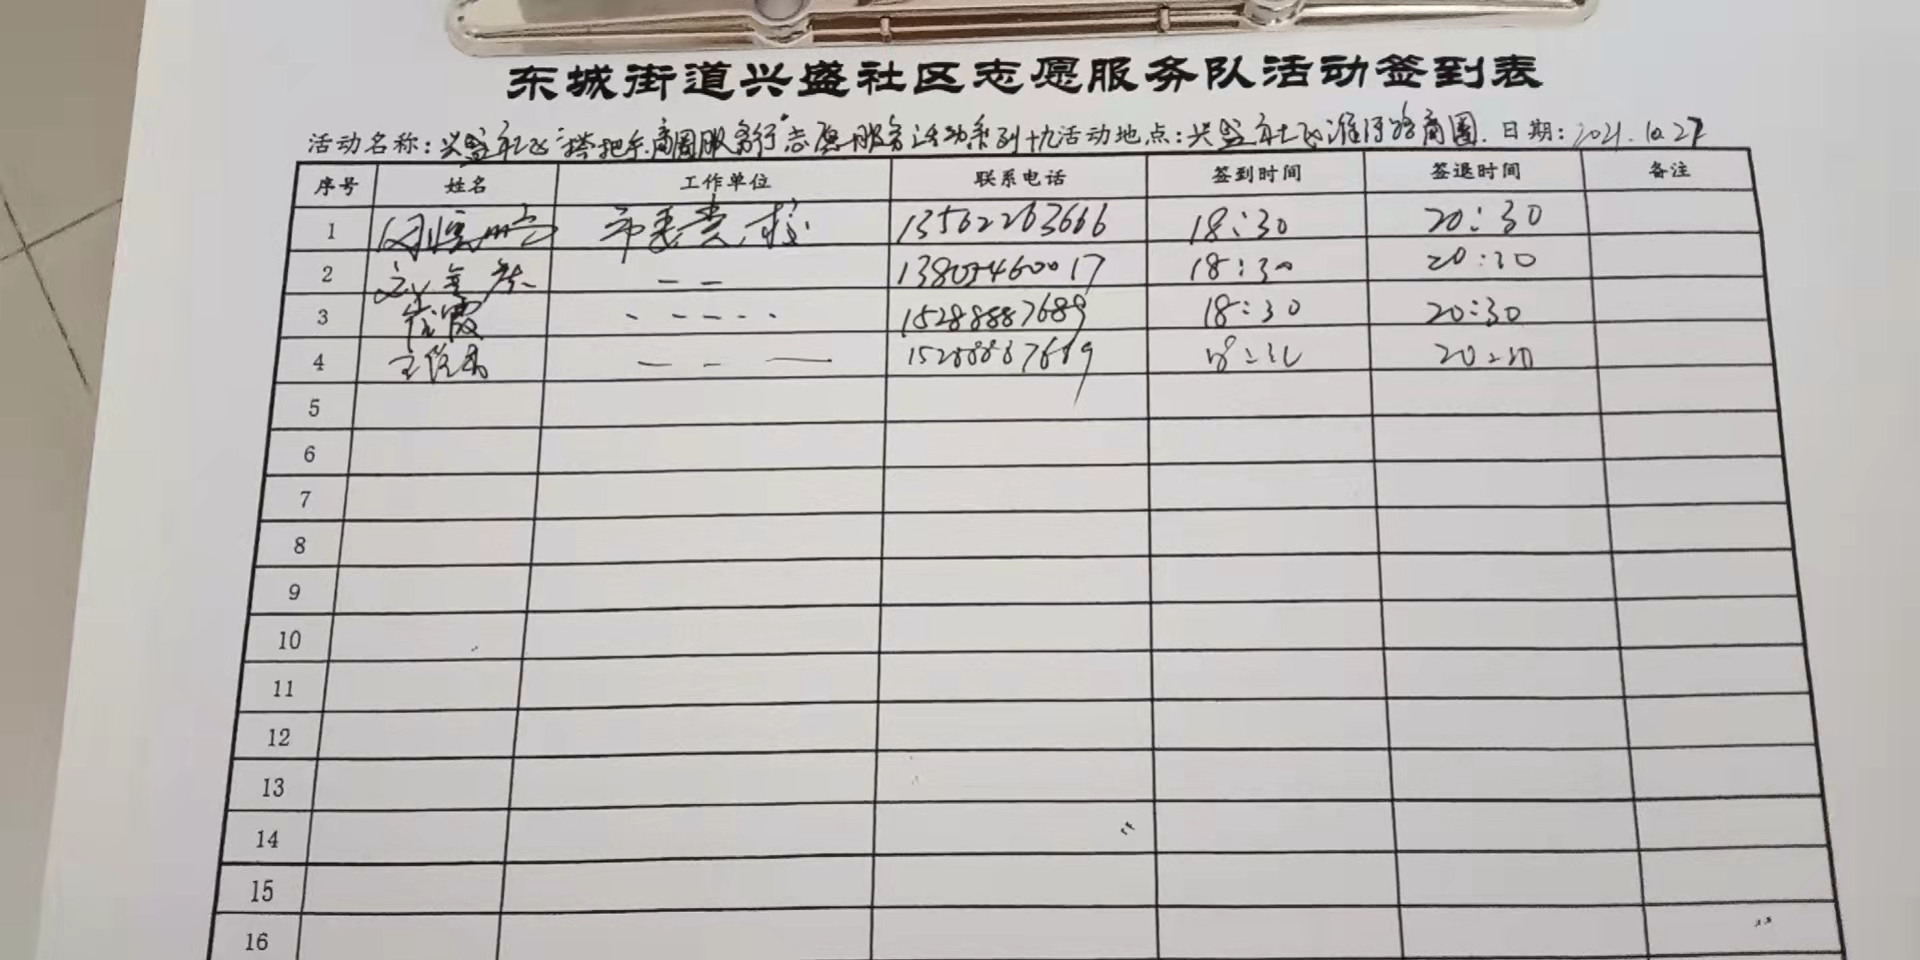 东城街道兴盛社区志愿服务队活动签到表
活动名称：兴盛社区"搭把手·商圈服务行"志愿服务活动系列十九 活动地点：兴盛社区淮河路商圈. 日期：2021.10.27
序号 姓名 工作单位 联系电话 签到时间 签退时间 备注
1 市委党校 13562263666 18:30 20:30
2 — — 18:30 20:30
3 崔霞 - - - - - 15288887689 18:30 20:30
4 — — —
5
6
7
8
9
10
11
12
13
14
15
16